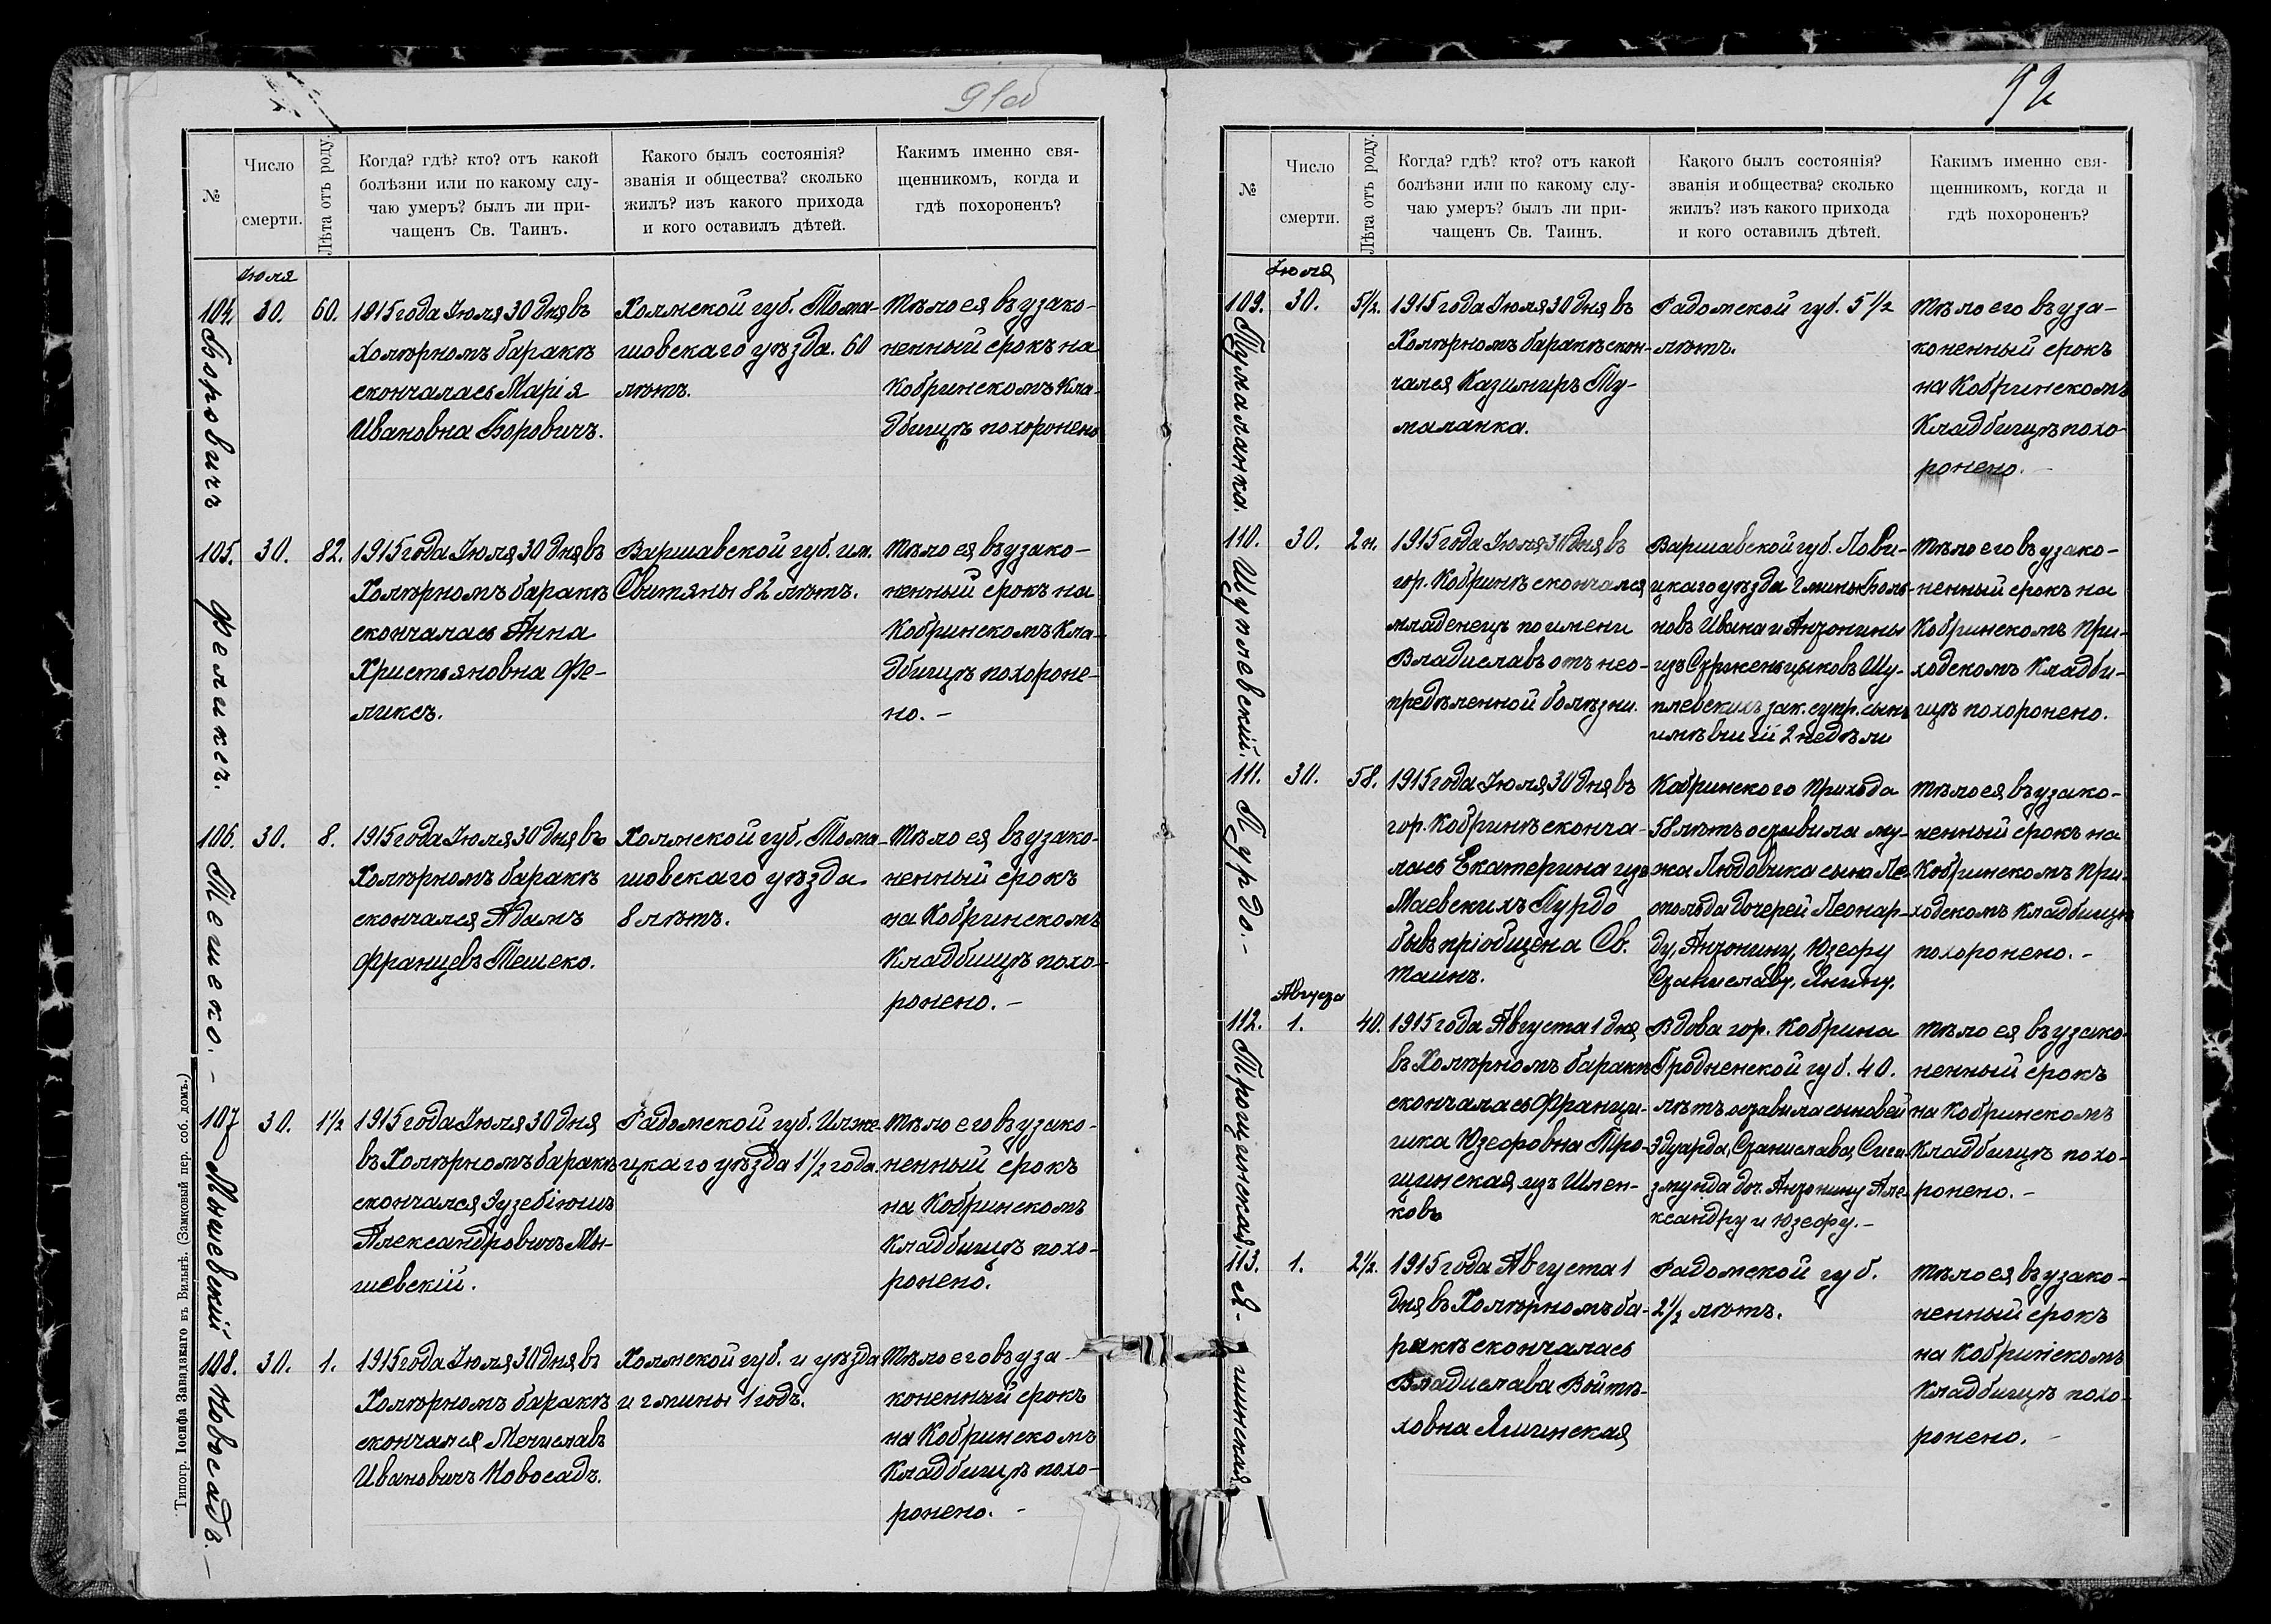 91об
№
Число
смерти.
Лѣта отъ роду.
Когда? гдѣ? кто? отъ какой
болѣзни или по какому слу-
чаю умеръ? былъ ли при-
чащенъ Св. Таинъ.
Какого былъ состоянія?
званія и общества? сколько
жилъ? изъ какого прихода
и кого оставилъ дѣтей.
Какимъ именно свя-
щенникомъ, когда и
гдѣ похороненъ?
Іюля
104.
Боровичъ
30.
60.
1915 года Іюля 30 дня въ
холѣрномъ баракѣ
скончалась Марія
Ивановна Боровичъ.
Холмской губ. Тома-
шовскаго уѣзда. 60
лѣтъ.
Тѣло ея въ узако-
ненный срокъ на
Кобринскомъ Кла-
дбищѣ похоронено
105.
Феликсъ.
30.
82.
1915 года Іюля 30 дня въ
Холѣрномъ баракѣ
скончалась Анна
Христьяновна Фе-
ликсъ.
Варшавской губ. им.
Свитяны 82 лѣтъ.
Тѣло ея въ узако-
ненный срокъ на
Кобринскомъ Кла-
дбищѣ похороне-
но. -
106.
Тешеко. -
30.
8.
1915 года Іюля 30 дня въ
Холѣрномъ баракѣ
скончался Адамъ
Францевъ Тешеко.
Холмской губ. Тома-
шовскаго уѣзда
8 лѣтъ.
Тѣло ея въ узако-
ненный срокъ
на Кобринскомъ
Кладбищѣ похо-
ронено. -
107
Мышевскій
30.
1½
1915 года Іюля 30 дня
въ Холѣрномъ баракѣ
скончался Эузебіюшъ
Александровичъ Мы-
шевскій.
Радомской губ. Илже-
цкаго уѣзда 1½ года.
Тѣло его въ узако-
ненный срокъ
на Кобринскомъ
Кладбищѣ похо-
ронено.
108.
Новосадъ. -
30.
1.
1915 года Іюля 30 дня въ
Холѣрномъ баракѣ
скончался Мечиславъ
Ивановичъ Новосадъ.
Холмской губ. и уѣзда
и гмины 1 годъ.
Тѣло его въ уза-
коненный срокъ
на Кобринскомъ
Кладбищѣ похо-
ронено. -
Типогр. Іосифа Завадзкаго въ Вильнѣ. (Замковый пер. соб. домъ.)
92
№
Число
смерти.
Лѣта отъ роду.
Когда? гдѣ? кто? отъ какой
болѣзни или по какому слу-
чаю умеръ? былъ ли при-
чащенъ Св. Таинъ.
Какого былъ состоянія?
званія и общества? сколько
жилъ? изъ какого прихода
и кого оставилъ дѣтей.
Какимъ именно свя-
щенникомъ, когда и
гдѣ похороненъ?
Іюля
109.
Тумаланка.
30.
5½.
1915 года Іюля 30 дня въ
Холѣрномъ баракѣ скон-
чался Казимиръ Ту-
маланка.
Радомской губ. 5½
лѣтъ.
Тѣло его въ уза-
коненный срокъ
на Кобринскомъ
Кладбищѣ похо-
ронено. -
110.
Шуплевскій.
30.
2 н.
1915 года Іюля 30 дня въ
гор. Кобринѣ скончался
младенецъ по имени
Владиславъ отъ нео-
предѣленной болѣзни.
Варшавской губ. Лови-
цкаго уѣзда Гмины Боль-
новъ Ивана и Антонины
изъ Шу-
плевскихъ зак. супр. сынъ
имѣвшій 2 недѣли
Тѣло его въ узако-
ненный срокъ на
Кобринскомъ При-
ходскомъ Кладби-
щѣ похоронено.
111.
Пурдо. -
30.
58.
1915 года Іюля 30 дня въ
гор. Кобринѣ сконча-
лась Екатерина изъ
Маевскихъ Пурдо
бывъ пріобщена Св.
Таинъ.
Кобринского Прихода
58 лѣтъ оставила му-
жа Людовика сына Ле-
опольда дочерей Леонар-
ду, Антонину, Юзефу
Станиславу, Янину.
Тѣло ея въ узако-
ненный срокъ на
Кобринскомъ При-
ходскомъ Кладбищѣ
похоронено. -
Августа
112.
Трощинская.
1.
40.
1915 года Августа 1 дня
въ Холѣрномъ баракѣ
скончалась Францi-
шка Юзефовна Тро-
щинская изъ Шлен-
ковъ
Вдова гор. Кобрина
Гродненской губ. 40.
лѣтъ оставила сыновей
Эдуарда, Станислава, Сиги-
змунда доч. Антонину Але-
ксандру и Юзефу. -
Тѣло ея въ узако-
ненный срокъ
на Кобринскомъ
Кладбищѣ похо-
ронено. -
113.
Я-
шинская
1.
2½.
1915 года Августа 1
дня въ Холѣрномъ ба-
ракѣ скончалась
Владислава Войтѣ-
ховна Яшинская
Радомской губ.
2½ лѣтъ.
Тѣло ея въ узако-
ненный срокъ
на Кобринскомъ
Кладбищѣ похо-
ронено. -